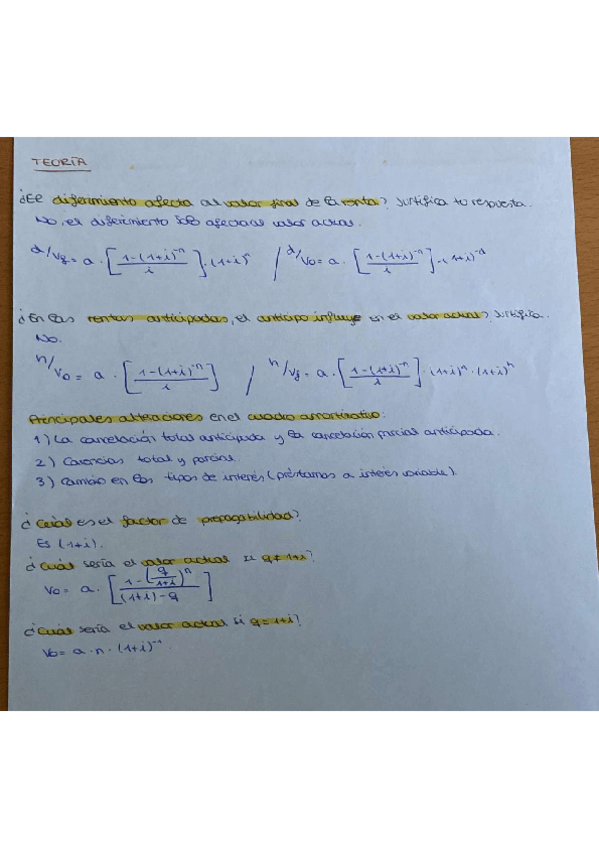 TEORÍA
¿El diferimiento afecta al valor final de la renta? Justifica tu respuesta.
No, el diferimiento sólo afecta al valor actual.
d/Vf = a · [1-(1+i)^-n / i] · (1+i)^n / d/V0 = a · [1-(1+i)^-n / i] · (1+i)^-d
¿En las rentas anticipadas, el anticipo influye en el valor actual? Justifica.
No.
h/V0 = a · [1-(1+i)^-n / i] / h/Vf = a · [1-(1+i)^-n / i] · (1+i)^n · (1+i)^h
Principales alteraciones en el cuadro amortizativo:
1) La cancelación total anticipada y la cancelación parcial anticipada.
2) Carencias total y parcial.
3) Cambio en los tipos de interés (préstamos a interés variable).
¿Cuál es el factor de propagabilidad?
Es (1+i).
¿Cuál sería el valor actual si q ≠ 1+i?
V0 = a · [1-(q/1+i)^n / (1+i)-q]
¿Cuál sería el valor actual si q = 1+i?
V0 = a · n · (1+i)^-1